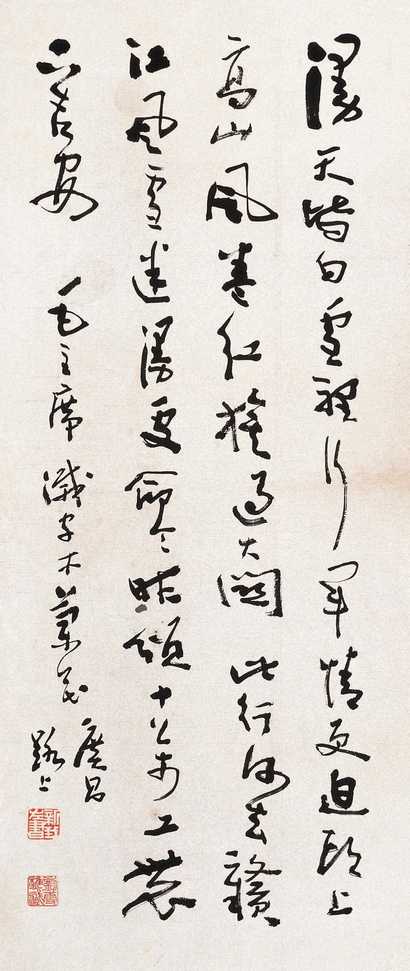 漫天皆白雪裡行軍情更迫頭上
高山風卷紅旗過大關此行何去贛
江風雪迷漫處命令昨頒十万工農
下吉安
毛主席減字木蘭花廣昌
路上
新我左書